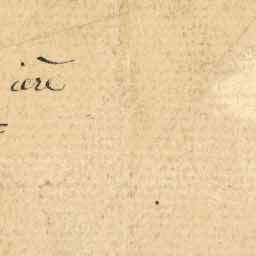 ière